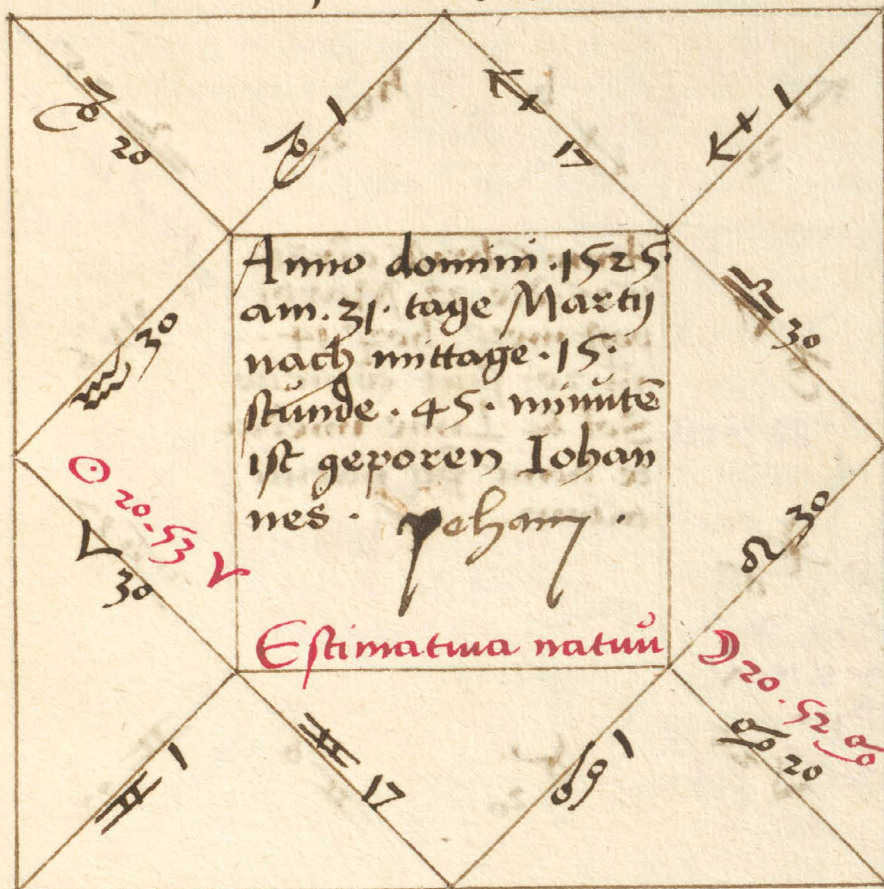 ♑ 20
♑ 1
♐ 17
♐ 1
♒ 30
♎ 30
Anno domini · 1525 ·
am · 31 · tage Martij
nach mittage · 15 ·
stunde · 45 · minutē
ist geporen Iohan
nes ·
☉ 20 · 53 ♈
♈ 30
♌ 30
Estimatiua
☽ 20 · 52 ♋
♋ 20
♊ 1
♊ 17
♋ 1